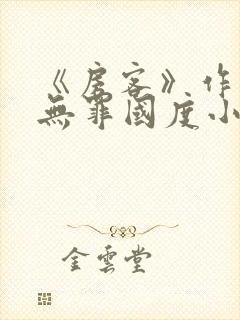 《房客》作
無罪國度小
金雲堂